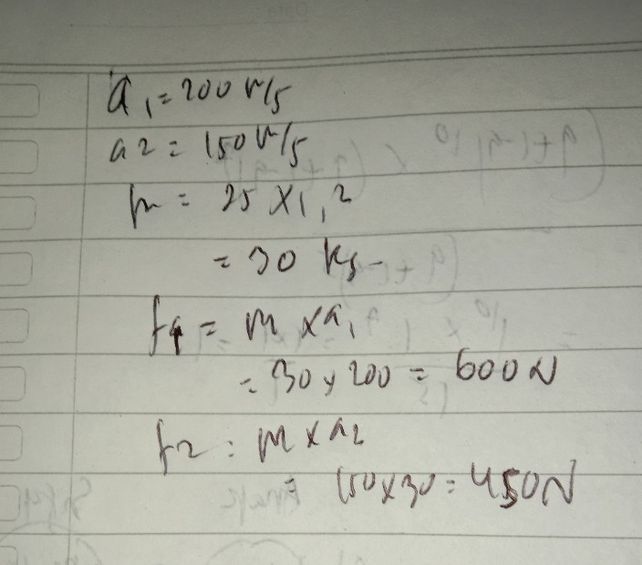 a1 = 200 m/s
a2 = 150 m/s
m = 25 x 1,2
= 30 kg
f1 = m x a1
= 30 x 200 = 600 N
f2 = m x a2
= 150 x 30 = 450 N